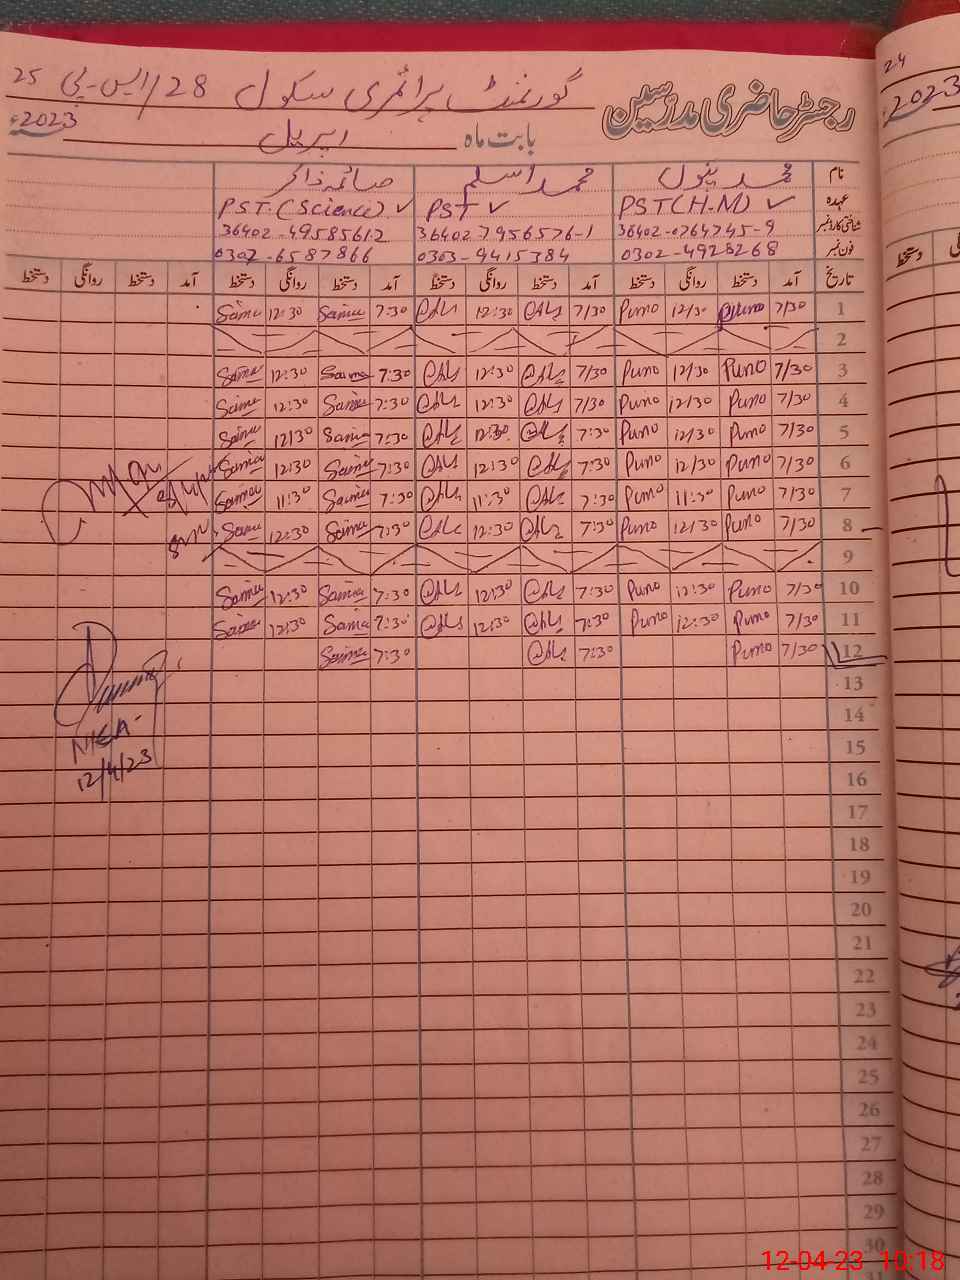 25
گورنمنٹ پرائمری سکول 28/ایس-پی
رجسٹر حاضری مدرسین
2023ء
بابت ماہ اپریل
نام محمد اسلم صائمہ ذاکر
عہدہ PST (H-M) ✓ PST ✓ PST (Science) ✓
شناختی کارڈ نمبر 36402-0764745-9 36402 7956576-1 36402-49585612
فون نمبر 0302-4928268 0303-9415384 0302-6587866
تاریخ آمد دستخط روانگی دستخط آمد دستخط روانگی دستخط آمد دستخط روانگی دستخط آمد دستخط روانگی دستخط
1 7/30 Puno 12/30 Puno 7/30 12:30 7:30 Saima 12:30 Saima
2
3 7/30 Puno 12/30 Puno 7/30 12:30 7:30 Saima 12:30 Saima
4 7/30 Puno 12/30 Puno 7/30 12:30 7:30 Saima 12:30 Saima
5 7/30 Puno 12/30 Puno 7:30 12:30 7:30 Saima 12/30 Saima
6 7/30 Puno 12/30 Puno 7:30 12:30 7:30 Saima 12:30 Saima
7 7/30 Puno 11:30 Puno 7:30 11:30 7:30 Saima 11:30 Saima
8 7/30 Puno 12/30 Puno 7:30 12:30 7:30 Saima 12:30 Saima
9
10 7/30 Puno 12:30 Puno 7:30 12:30 7:30 Saima 12:30 Saima
11 7/30 Puno 12:30 Puno 7:30 12:30 7:30 Saima 12:30 Saima
12 7/30 Puno 7:30 7:30 Saima
13
14
15
16
17
18
19
20
21
22
23
24
25
26
27
28
29
30
MEA-
12/4/23
24
2023
دستخط
12-04-23 10:18